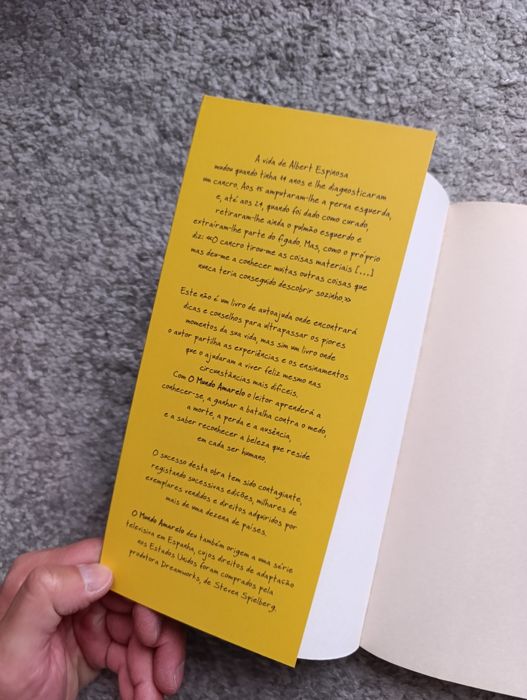 A vida de Albert Espinosa
mudou quando tinha 14 anos e lhe diagnosticaram
um cancro. Aos 15 amputaram-lhe a perna esquerda,
e, até aos 24, quando foi dado como curado,
retiraram-lhe ainda o pulmão esquerdo e
extraíram-lhe parte do fígado. Mas, como o próprio
diz: «O cancro tirou-me as coisas materiais [...]
mas deu-me a conhecer muitas outras coisas que
nunca teria conseguido descobrir sozinho.»
Este não é um livro de autoajuda onde encontrará
dicas e conselhos para ultrapassar os piores
momentos da sua vida, mas sim um livro onde
o autor partilha as experiências e os ensinamentos
que o ajudaram a viver feliz mesmo nas
circunstâncias mais difíceis.
Com O Mundo Amarelo o leitor aprenderá a
conhecer-se, a ganhar a batalha contra o medo,
a morte, a perda e a ausência,
e a saber reconhecer a beleza que reside
em cada ser humano.
O sucesso desta obra tem sido contagiante,
registando sucessivas edições, milhares de
exemplares vendidos e direitos adquiridos por
mais de uma dezena de países.
O Mundo Amarelo deu também origem a uma série
televisiva em Espanha, cujos direitos de adaptação
aos Estados Unidos foram comprados pela
produtora Dreamworks, de Steven Spielberg.